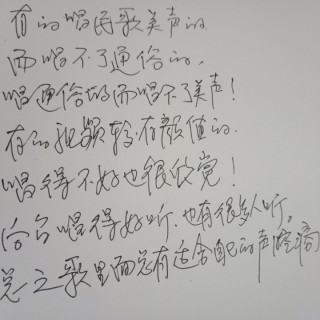 有的唱民歌美声的
而唱不了通俗的,
唱通俗的而唱不了美声!
有的视频较有颜值的.
唱得不好也很欣赏!
唱得好听.也有很多人听。
总之歌里面总有适合自己的声腔